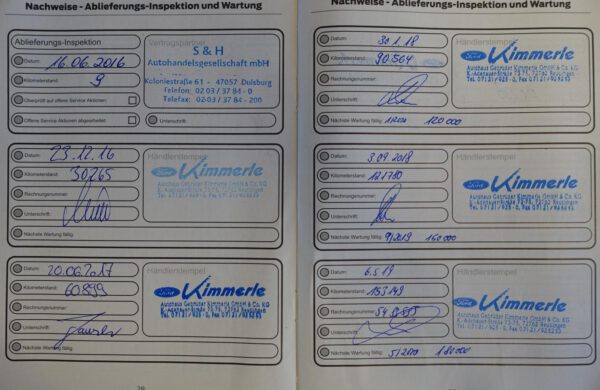 Nachweise - Ablieferungs-Inspektion und Wartung
Ablieferungs-Inspektion
Datum: 16.06.2016
Kilometerstand: 9
Überprüft auf offene Service Aktionen:
Offene Service Aktionen abgearbeitet:
Vertragspartner
S & H
Autohandelsgesellschaft mbH
Koloniestraße 61 - 47057 Duisburg
Telefon: 02 03 / 37 84 - 0
Telefax: 02 03 / 37 84 - 200
Unterschrift:
Datum: 23.12.16
Kilometerstand: 30265
Rechnungsnummer:
Unterschrift:
Nächste Wartung fällig:
Händlerstempel
Ford Kimmerle
Autohaus Gebrüder Kimmerle GmbH & Co. KG
Datum: 20.06.2017
Kilometerstand: 60.899
Rechnungsnummer:
Unterschrift:
Nächste Wartung fällig:
Händlerstempel
Ford Kimmerle
Autohaus Gebrüder Kimmerle GmbH & Co. KG
K.-Adenauer-Straße 73-75, 72762 Reutlingen
Nachweise - Ablieferungs-Inspektion und Wartung
Datum: 30.1.18
Kilometerstand: 90.564
Rechnungsnummer:
Unterschrift:
Nächste Wartung fällig: 120 000
Ford Kimmerle
Autohaus Gebrüder Kimmerle GmbH & Co. KG
K.-Adenauer-Straße 73-75, 72762 Reutlingen
Datum: 3.09.2018
Kilometerstand: 121780
Rechnungsnummer:
Unterschrift:
Nächste Wartung fällig: 9/2019 150 000
Händlerstempel
Ford Kimmerle
Autohaus Gebrüder Kimmerle GmbH & Co. KG
K.-Adenauer-Straße 73-75, 72762 Reutlingen
Datum: 6.5.19
Kilometerstand: 153149
Rechnungsnummer:
Unterschrift:
Nächste Wartung fällig: 180000
Händlerstempel
Ford Kimmerle
Autohaus Gebrüder Kimmerle GmbH & Co. KG
K.-Adenauer-Straße 73-75, 72762 Reutlingen